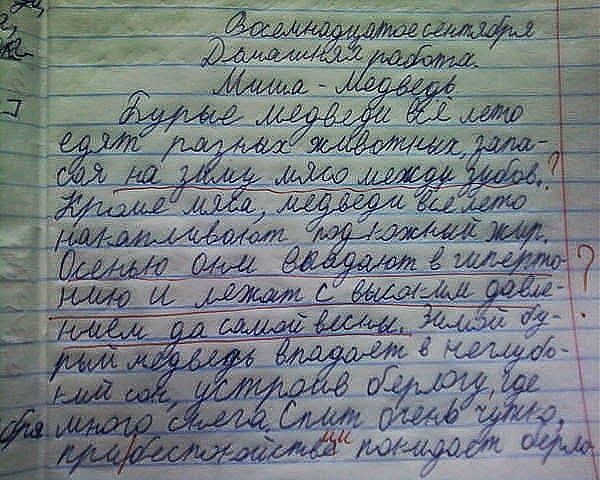 Восемнадцатое сентября
Домашняя работа.
Миша - Медведь
Бурые медведи всё лето
едят разных животных, запа-
сая на зиму мясо между зубов. ?
Кроме мяса, медведи всё лето
накапливают подкожный жир.
Осенью они впадают в гиперто- ?
нию и лежат с высоким давле-
нием до самой весны. Зимой бу-
рый медведь впадает в неглубо-
кий сон, устроив берлогу, где
много снега. Спит очень чутко,
при беспокойстве покидает берло-